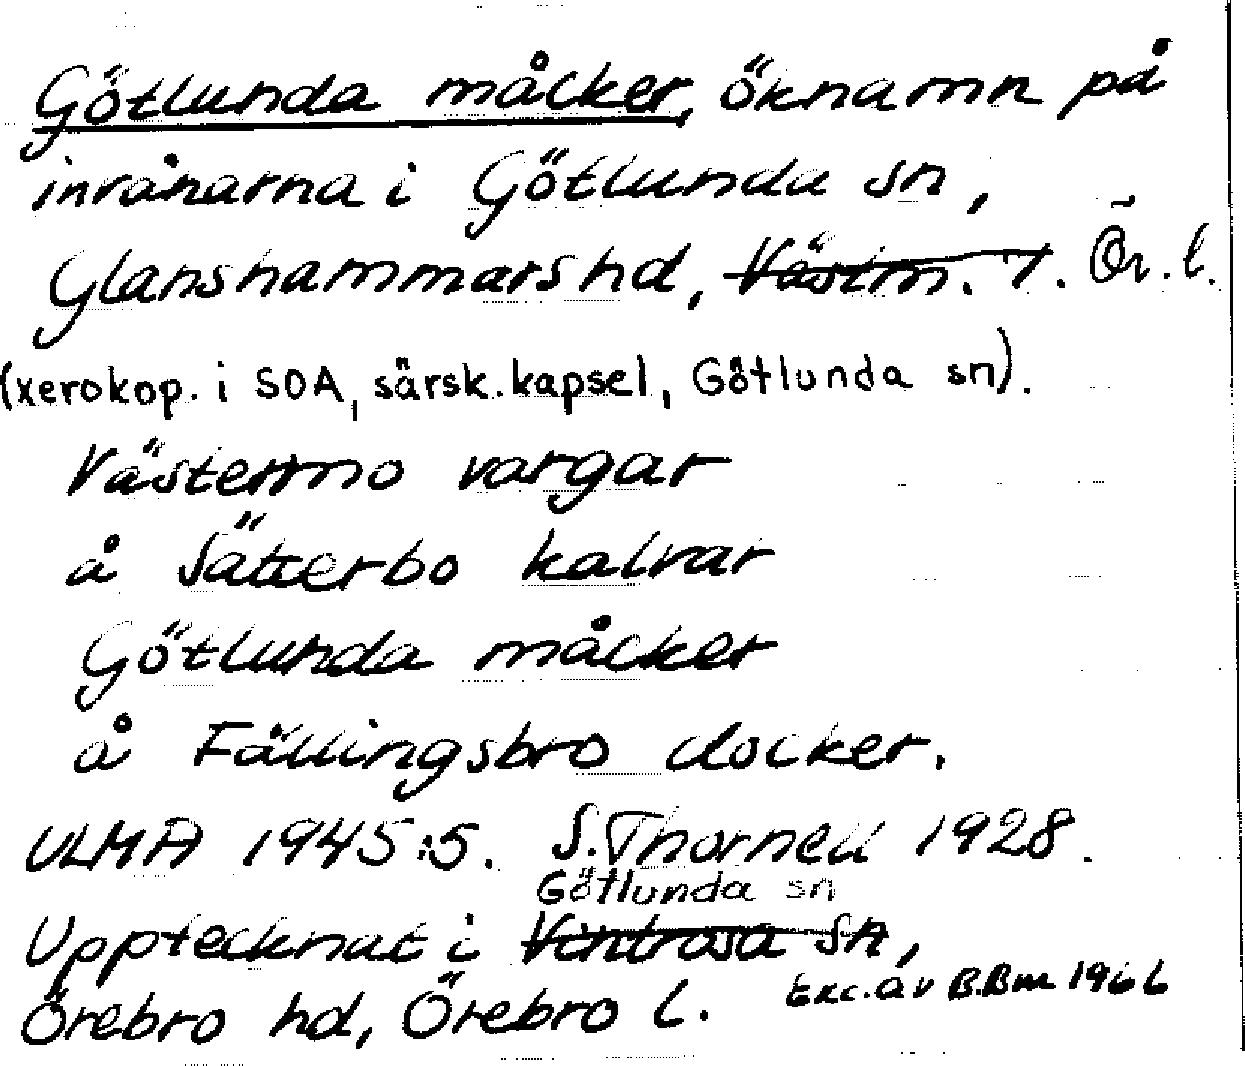 Götlunda måcker, öknamn på
invånarna i Götlunda sn,
Glanshammars hd, Västm. l. Ör. l.
(xerokop. i SOA, särsk. kapsel, Götlunda sn).
Västermo vargar
å Sätterbo kalvar
Götlunda måcker
å Fällingsbro docker.
ULMA 1945:5. S. Thornell 1928.
Götlunda sn
Upptecknat i Vintrosa sn,
Örebro hd, Örebro l.
Exc. av B.Bm 1966